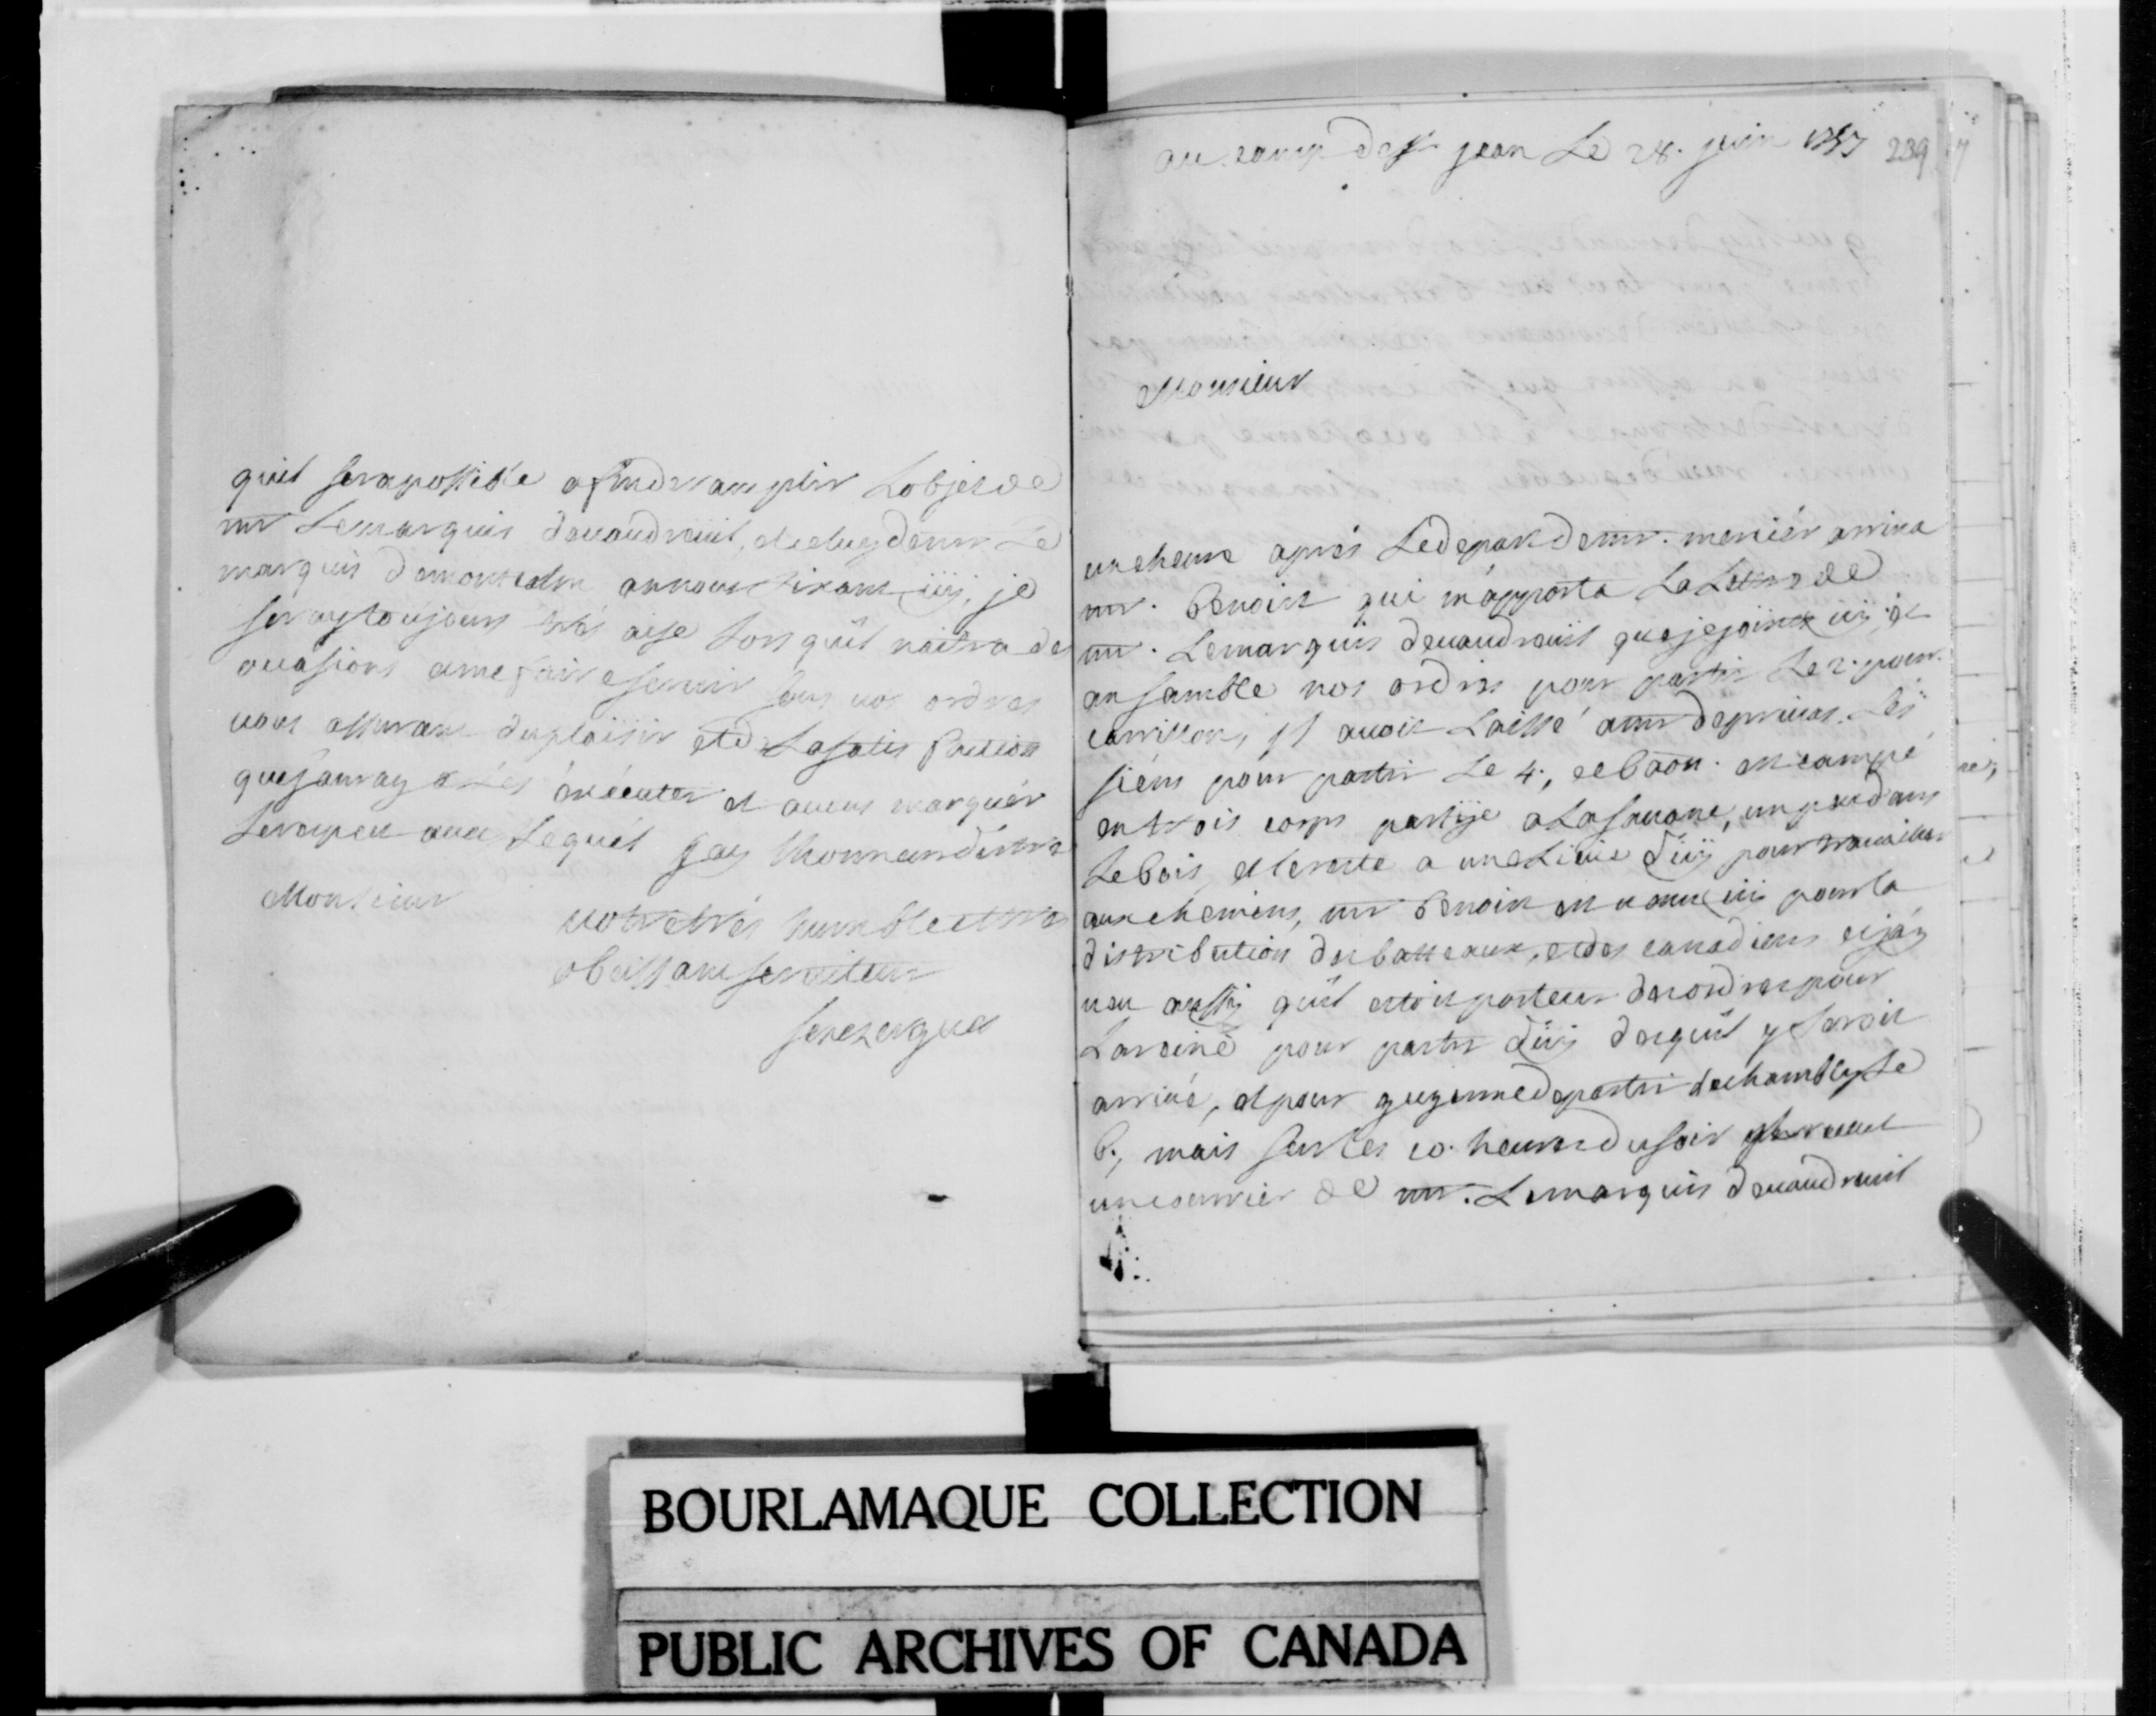 quil serapossible afinderamplir Lobjetde
mr Lemarquis devaudreuil, etceluydemr Le
marquis demontcalm annous tirant icy, je
seraytoujours trés aise Lors quil naitra de
occasions amefaireservir sous vos ordres
vous assurant duplaisir etde Lasatisfaction
quejauray a Les éxécuter et avous marquér
Lerespect avec Lequel jay Lhonneurdetre
Monsieur
votretrés humbleettres
obeissantserviteur
senezergues
au camp de st jean Le 28. juin 1757 239
Monsieur
uneheure aprés Ledepartdemr. merciér arriva
mr. Benoist qui m'apporta LaLettrede
mr. Lemarquis devaudreuil quejejoint icy, et
ansamble nos ordres pour partir Le 2. pour
carrillon, il avoit Laissé amr deprivas Les
siens pour partir Le 4., lebaon. est campé
entrois corps partije aLasavane, unpeudans
Lebois, etlereste a uneLieue d'icy pour travailler
auxchemins, mr Benoist est venu icy pourla
distribution desbatteaux, etdes canadiens etjay
veu aussy quil estoitporteur desordrespour
Lareine pour partir d'icy desquil y seroit
arrivé, etpour guyennedepartir dechamblyLe
6., mais surles 10. heuresdusoir
uncourrier de mr. Lemarquis devaudreuil
BOURLAMAQUE COLLECTION
PUBLIC ARCHIVES OF CANADA